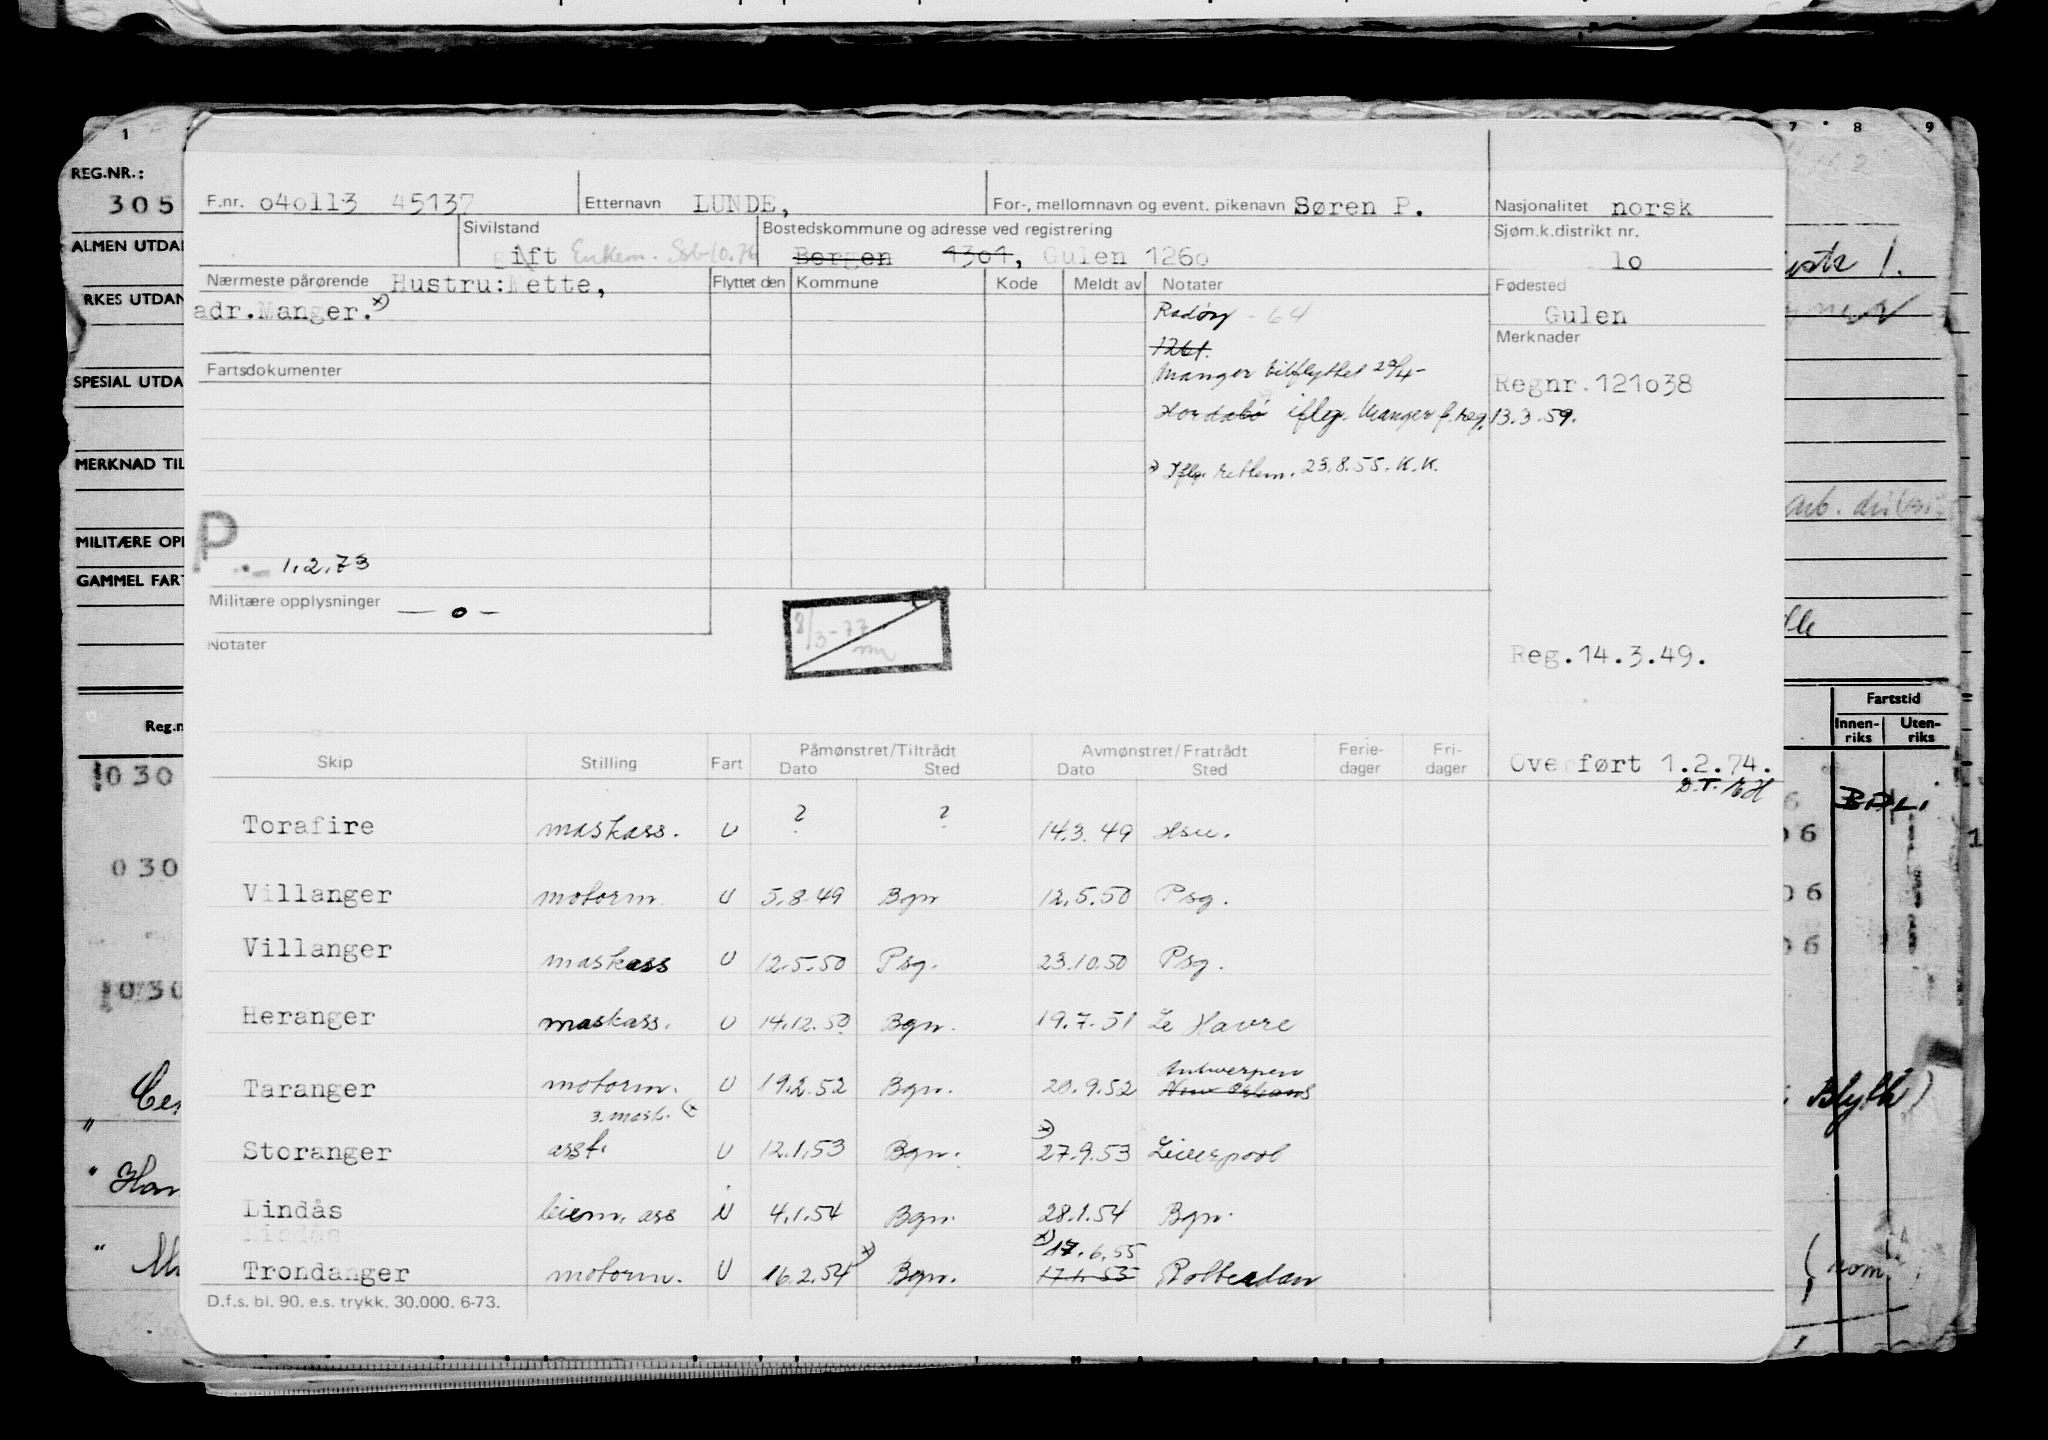 1 7 8 9
REG.NR.:
305
ALMEN UTDA
RKES UTDAN
SPESIAL UTDA
MERKNAD TIL
MILITÆRE OP
GAMMEL FAR
Reg.n
F.nr. o4o113 45137 Etternavn LUNDE, For-, mellomnavn og event. pikenavn Søren P. Nasjonalitet norsk
Sivilstand gift Enkem. Ssb-10.76 Bostedskommune og adresse ved registrering Bergen 1301, Gulen 126o Sjøm.k.distrikt nr. 1o
Nærmeste pårørende Hustru:Mette, Flyttet den Kommune Kode Meldt av Notater Fødested
adr.Manger. x) Radøy - 64 Gulen
1261. Merknader
Fartsdokumenter Manger tilflyttet 29/4- Regnr.121o38
Hordabø iflg. Manger f.reg. 13.3.59.
x) Iflg. retlem. 23.8.55. K.K.
P. 1.2.73
Militære opplysninger — o —
8/3-77
Notater
Reg.14.3.49.
Skip Stilling Fart Påmønstret/Tiltrådt Avmønstret/Fratrådt Ferie- Fri-
Dato Sted Dato Sted dager dager
Overført 1.2.74.
Torafire maskass. U ? ? 14.3.49 Hsu.
Villanger motorm. U 5.8.49 Bgn 12.5.50 Psg.
Villanger maskass U 12.5.50 Psg. 23.10.50 Psg.
Heranger maskass. U 14.12.50 Bgn. 19.7.51 Le Havre
Taranger motorm. U 19.2.52 Bgn. 20.9.52 Antwerpen New Orleans
3. mask. x)
Storanger asst. U 12.1.53 Bgn. x) 27.9.53 Liverpool
Lindås leiem. ass N 4.1.54 Bgn. 28.1.54 Bgn.
Lindås
Trondanger motorm. U 16.2.54 x) Bgn. x) 17.6.55 17.1.55 Rotterdam
D.f.s. bl. 90. e.s. trykk. 30.000. 6-73.
Fartstid
Innen- Uten-
riks riks
030
030
030
06
06
06
Blyth)
(nom